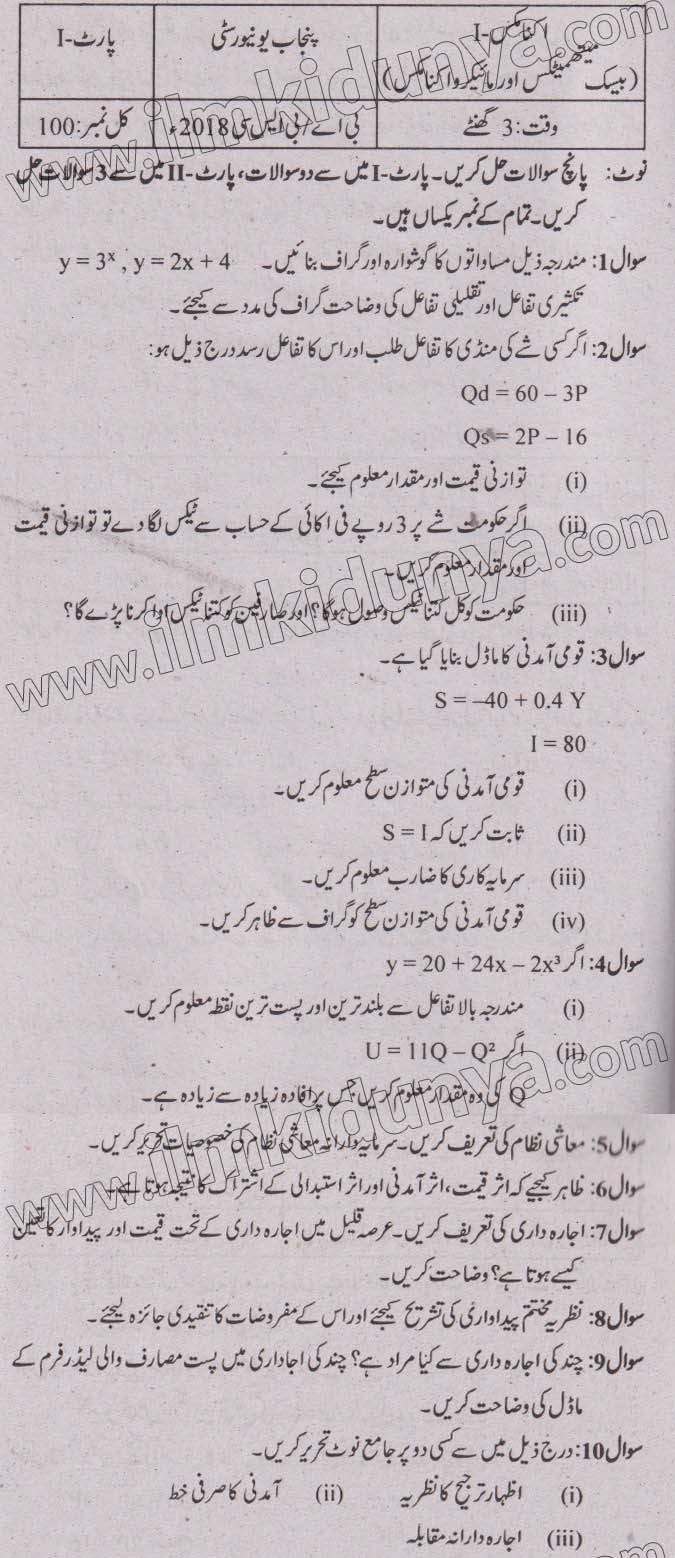 اکنامکس-I
(بیسک میتھمیٹکس اور مائیکرو اکنامکس)
پنجاب یونیورسٹی
پارٹ-I
وقت: 3 گھنٹے
بی اے/بی ایس سی 2018ء
کل نمبر: 100
نوٹ: پانچ سوالات حل کریں۔ پارٹ-I میں سے دو سوالات، پارٹ-II میں سے 3 سوالات حل
کریں۔ تمام کے نمبر یکساں ہیں۔
سوال 1: مندرجہ ذیل مساواتوں کا گوشوارہ اور گراف بنائیں۔ y = 3ˣ , y = 2x + 4
تکثیری تفاعل اور تقلیلی تفاعل کی وضاحت گراف کی مدد سے کیجئے۔
سوال 2: اگر کسی شے کی منڈی کا تفاعل طلب اور اس کا تفاعل رسد درج ذیل ہو:
Qd = 60 – 3P
Qs = 2P – 16
(i) توازنی قیمت اور مقدار معلوم کیجئے۔
(ii) اگر حکومت شے پر 3 روپے فی اکائی کے حساب سے ٹیکس لگا دے تو توازنی قیمت
اور مقدار معلوم کریں۔
(iii) حکومت کو کل کتنا ٹیکس وصول ہوگا؟ اور صارفین کو کتنا ٹیکس ادا کرنا پڑے گا؟
سوال 3: قومی آمدنی کا ماڈل بنایا گیا ہے۔
S = –40 + 0.4 Y
I = 80
(i) قومی آمدنی کی متوازن سطح معلوم کریں۔
(ii) ثابت کریں کہ S = I
(iii) سرمایہ کاری کا ضارب معلوم کریں۔
(iv) قومی آمدنی کی متوازن سطح کو گراف سے ظاہر کریں۔
سوال 4: اگر y = 20 + 24x – 2x³
(i) مندرجہ بالا تفاعل سے بلند ترین اور پست ترین نقطہ معلوم کریں۔
(ii) اگر U = 11Q – Q²
Q کی وہ مقدار معلوم کریں جس پر افادہ زیادہ سے زیادہ ہے۔
سوال 5: معاشی نظام کی تعریف کریں۔ سرمایہ دارانہ معاشی نظام کی خصوصیات تحریر کریں۔
سوال 6: ظاہر کیجیے کہ اثر قیمت، اثر آمدنی اور اثر استبدالی کے اشتراک کا نتیجہ ہوتا ہے۔
سوال 7: اجارہ داری کی تعریف کریں۔ عرصہ قلیل میں اجارہ داری کے تحت قیمت اور پیداوار کا تعین
کیسے ہوتا ہے؟ وضاحت کریں۔
سوال 8: نظریہ مختتم پیداواری کی تشریح کیجئے اور اس کے مفروضات کا تنقیدی جائزہ لیجئے۔
سوال 9: چند کی اجارہ داری سے کیا مراد ہے؟ چند کی اجاداری میں پست مصارف والی لیڈر فرم کے
ماڈل کی وضاحت کریں۔
سوال 10: درج ذیل میں سے کسی دو پر جامع نوٹ تحریر کریں۔
(i) اظہار ترجیح کا نظریہ (ii) آمدنی کا صرفی خط
(iii) اجارہ دارانہ مقابلہ
www.ilmkidunya.com
www.ilmkidunya.com
www.ilmkidunya.com